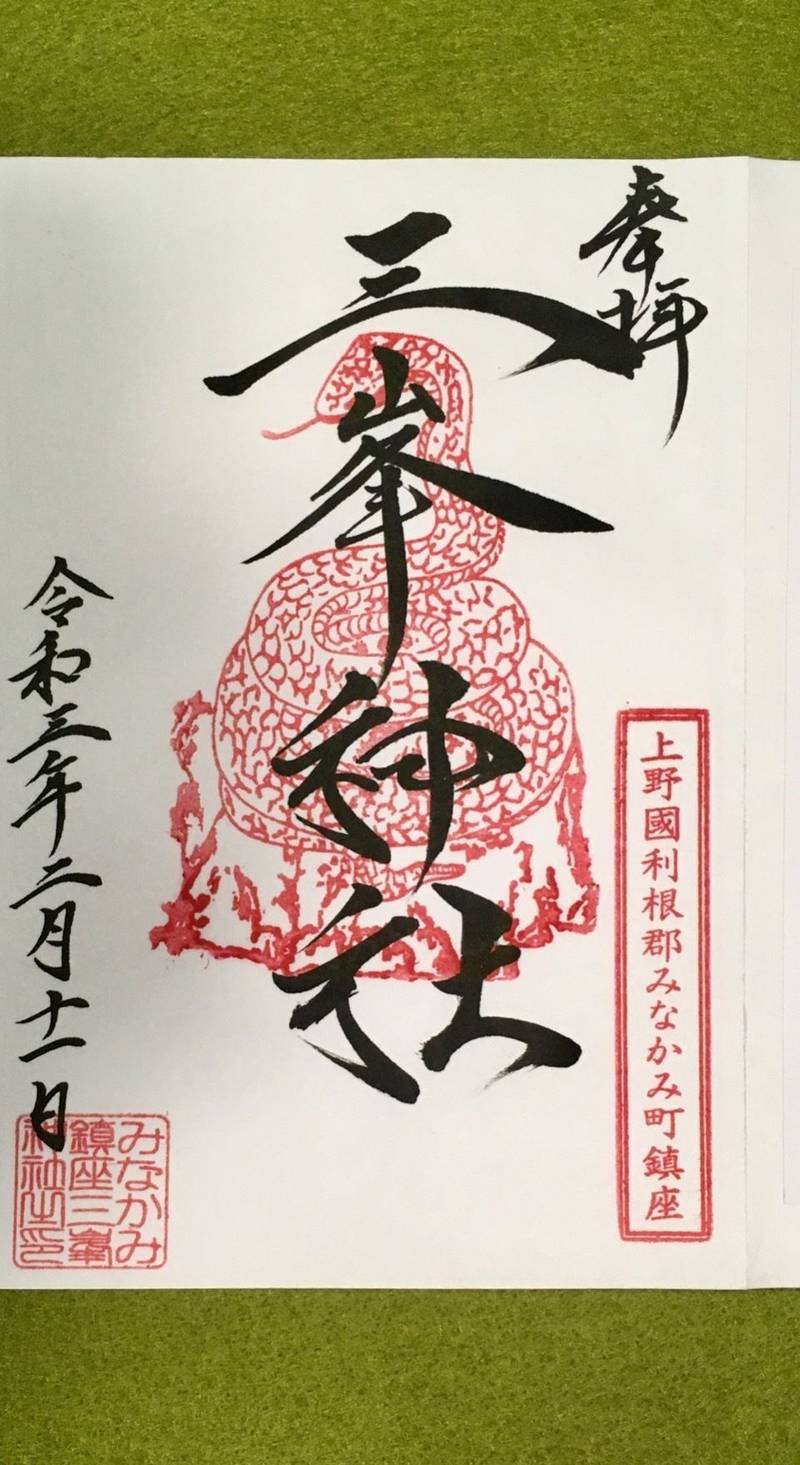 奉拝
上野國利根郡みなかみ町鎮座
三峯神社
令和三年二月十一日
みなかみ
鎮座三峯
神社之印